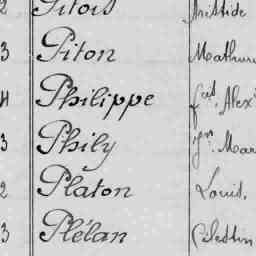 2 Pitois Aristide
3 Piton Mathuri
4 Philippe fçis, Alex
3 Phily Jn Mar
2 Platon Louis,
3 Plélan Célestin